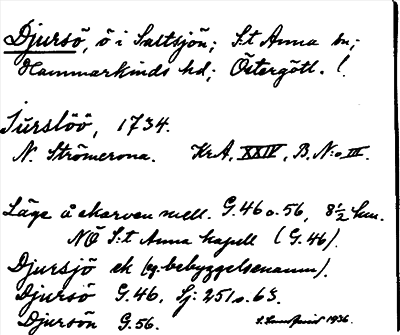 Djursö, ö i Saltsjön; S:t Anna sn;
Hammarkinds hd; Östergötl. l.
Jurslöö, 1734.
N. Strömerona. KrA, XXIV, B, N:o III.
Läge å ekarven mell. G.46 o. 56, 8½ km.
NÖ S:t Anna kapell (G.46).
Djursjö ek (g. bebyggelsenamn).
Djursö G.46, Sj: 251 o. 63.
Djursön G.56. 1936.